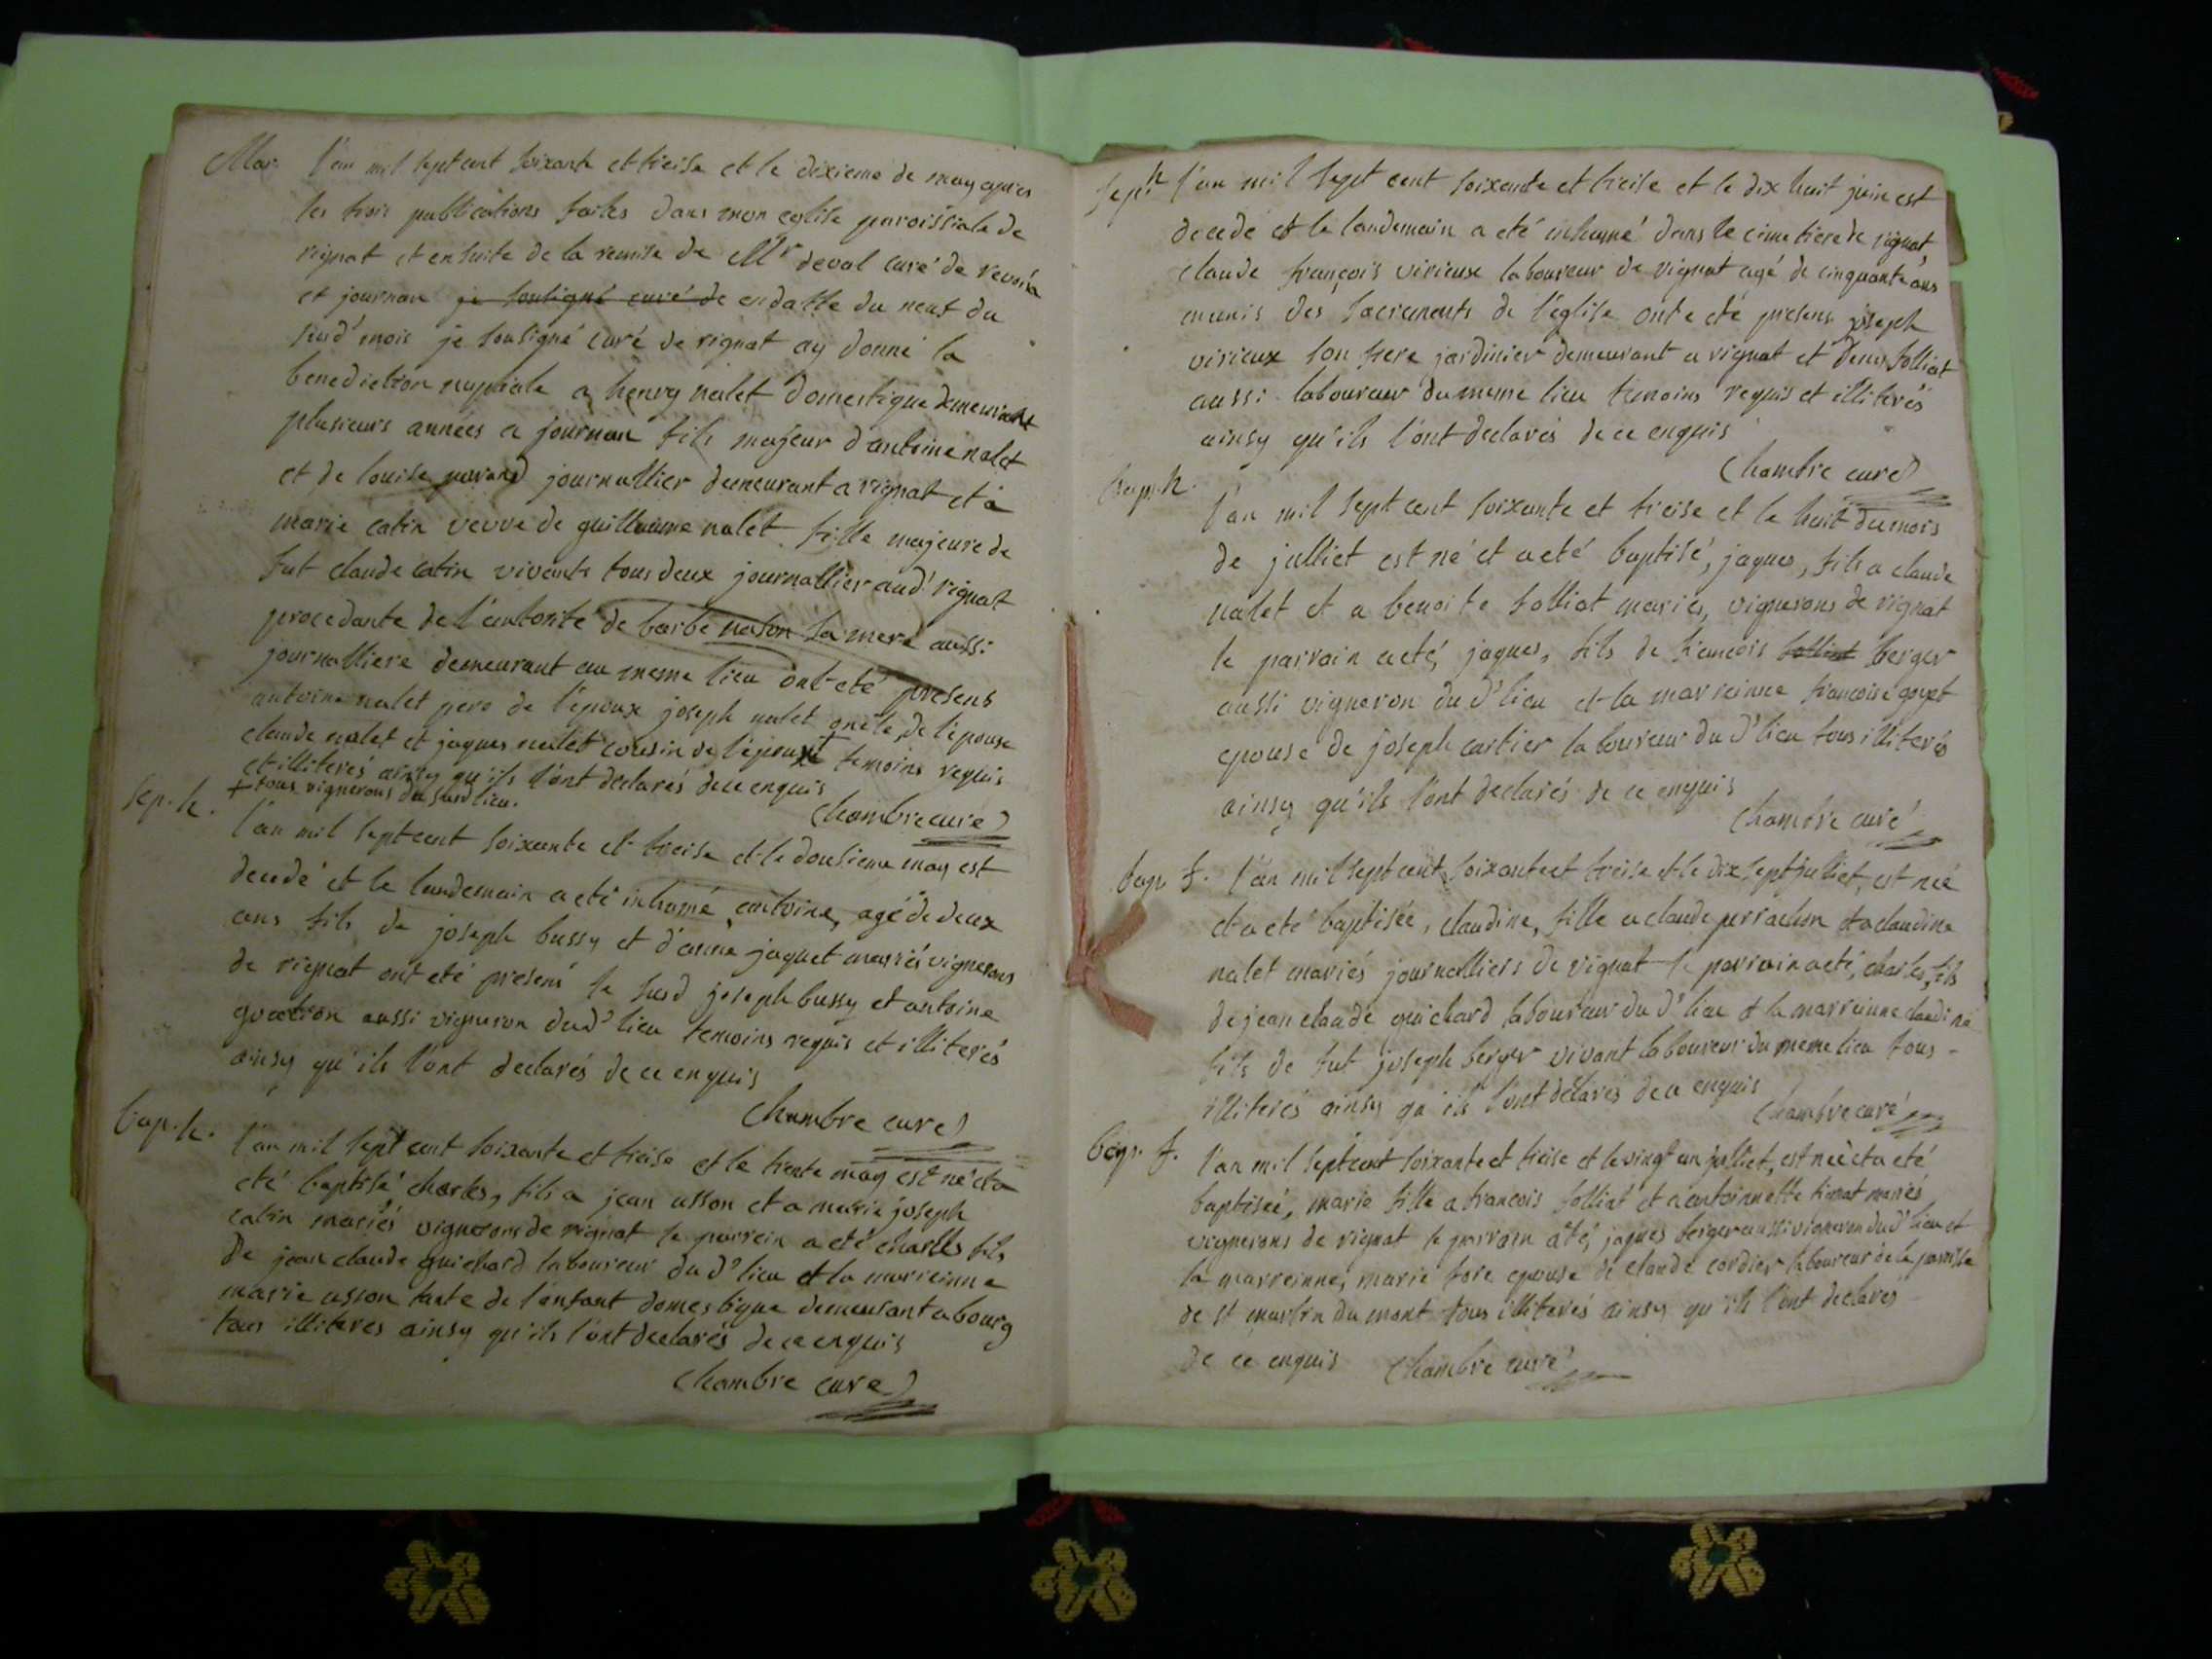 Mar. l'an mil sept cent soixante et treise et le dixieme de may apres
les trois publications faites dans mon eglise paroissiale de
rignat et ensuite de la remise de Mr deval curé de revona
et journan je soussigné curé de en datte du neuf du
susd' mois je sousigné curé de rignat ay donné la
benediction nuptiale a henry nalet domestique demeurant
plusieurs années a journan fils majeur d'antoine nalet
et de louise journallier demeurant a rignat et à
marie catin veuve de guillaume nalet fille majeure de
fut claude catin vivants tous deux journallier aud' rignat
procedante de l'autorité de barbe nalon sa mere aussi
journalliere demeurant au meme lieu ont eté presens
antoine nalet pere de l'epoux joseph nalet oncle de l'epouse
claude nalet et jaques nalet cousin de l'epoux + temoins requis
et illiterés ainsy qu'ils l'ont declarés de ce enquis
+ tous vignerons du susd lieu.
Chambre curé
Sep. h. l'an mil sept cent soixante et treise et le dousieme may est
decedé et le landemain a eté inhumé, antoine, agé de deux
ans fils de joseph bussy et d'anne jaquet mariés vignerons
de rignat ont eté presens le susd joseph bussy et antoine
goection aussi vigneron dud' lieu temoins requis et illiterés
ainsy qu'ils l'ont declarés de ce enquis
Chambre curé
bap. h. l'an mil sept cent soixante et treise et le trente may est né et a
eté baptisé charles, fils a jean asson et a marie joseph
catin mariés vignerons de rignat le parrein a eté charles fils
de jean claude guichard laboureur du d' lieu et la marreinne
marie asson tante de l'enfant domestique demeurant a bourg
tous illiteres ainsy qu'ils l'ont declarés de ce enquis
Chambre curé
sep. h l'an mil sept cent soixante et treise et le dix huit juin est
decedé et le landemain a eté inhumé dans le cimetiere de rignat,
claude françois virieux laboureur de rignat agé de cinquante ans
munis des sacrements de l'église ont eté presens joseph
virieux son frere jardinier demeurant a rignat et denis folliat
aussi laboureur du meme lieu temoins requis et illiterés
ainsy qu'ils l'ont declarés de ce enquis
Chambre curé
bap. h. l'an mil sept cent soixante et treise et le huit du mois
de julliet est né et a eté baptisé, jaques, fils a claude
nalet et a benoite folliat mariés, vignerons de rignat
le parrain a eté, jaques, fils de francois folliat berger
aussi vigneron du d' lieu et la marreinne francoise goyet
epouse de joseph cartier laboureur du d' lieu tous illiterés
ainsy qu'ils l'ont declarés de ce enquis
Chambre curé
bap. f. l'an mil sept cent soixante et treise et le dix sept julliet, est née
et a eté baptisée, claudine, fille a claude perrachon et a claudine
nalet mariés journalliers de rignat le parrain a eté, charles, fils
de jean claude guichard laboureur du d' lieu et la marreinne claudine
fils de fut joseph berger vivant laboureur du meme lieu tous
illiterés ainsy qu'ils l'ont declarés de ce enquis
Chambre curé
bap. f. l'an mil sept cent soixante et treise et le vingt un julliet, est née et a eté
baptisée, marie fille a francois folliat et a antoinnette mariés
vignerons de rignat le parrain a eté, jaques berger aussi vigneron du d' lieu et
la marreinne, marie fore epouse de claude cordier laboureur de la paroisse
de st martin du mont tous illiterés ainsy qu'ils l'ont declarés
de ce enquis Chambre curé